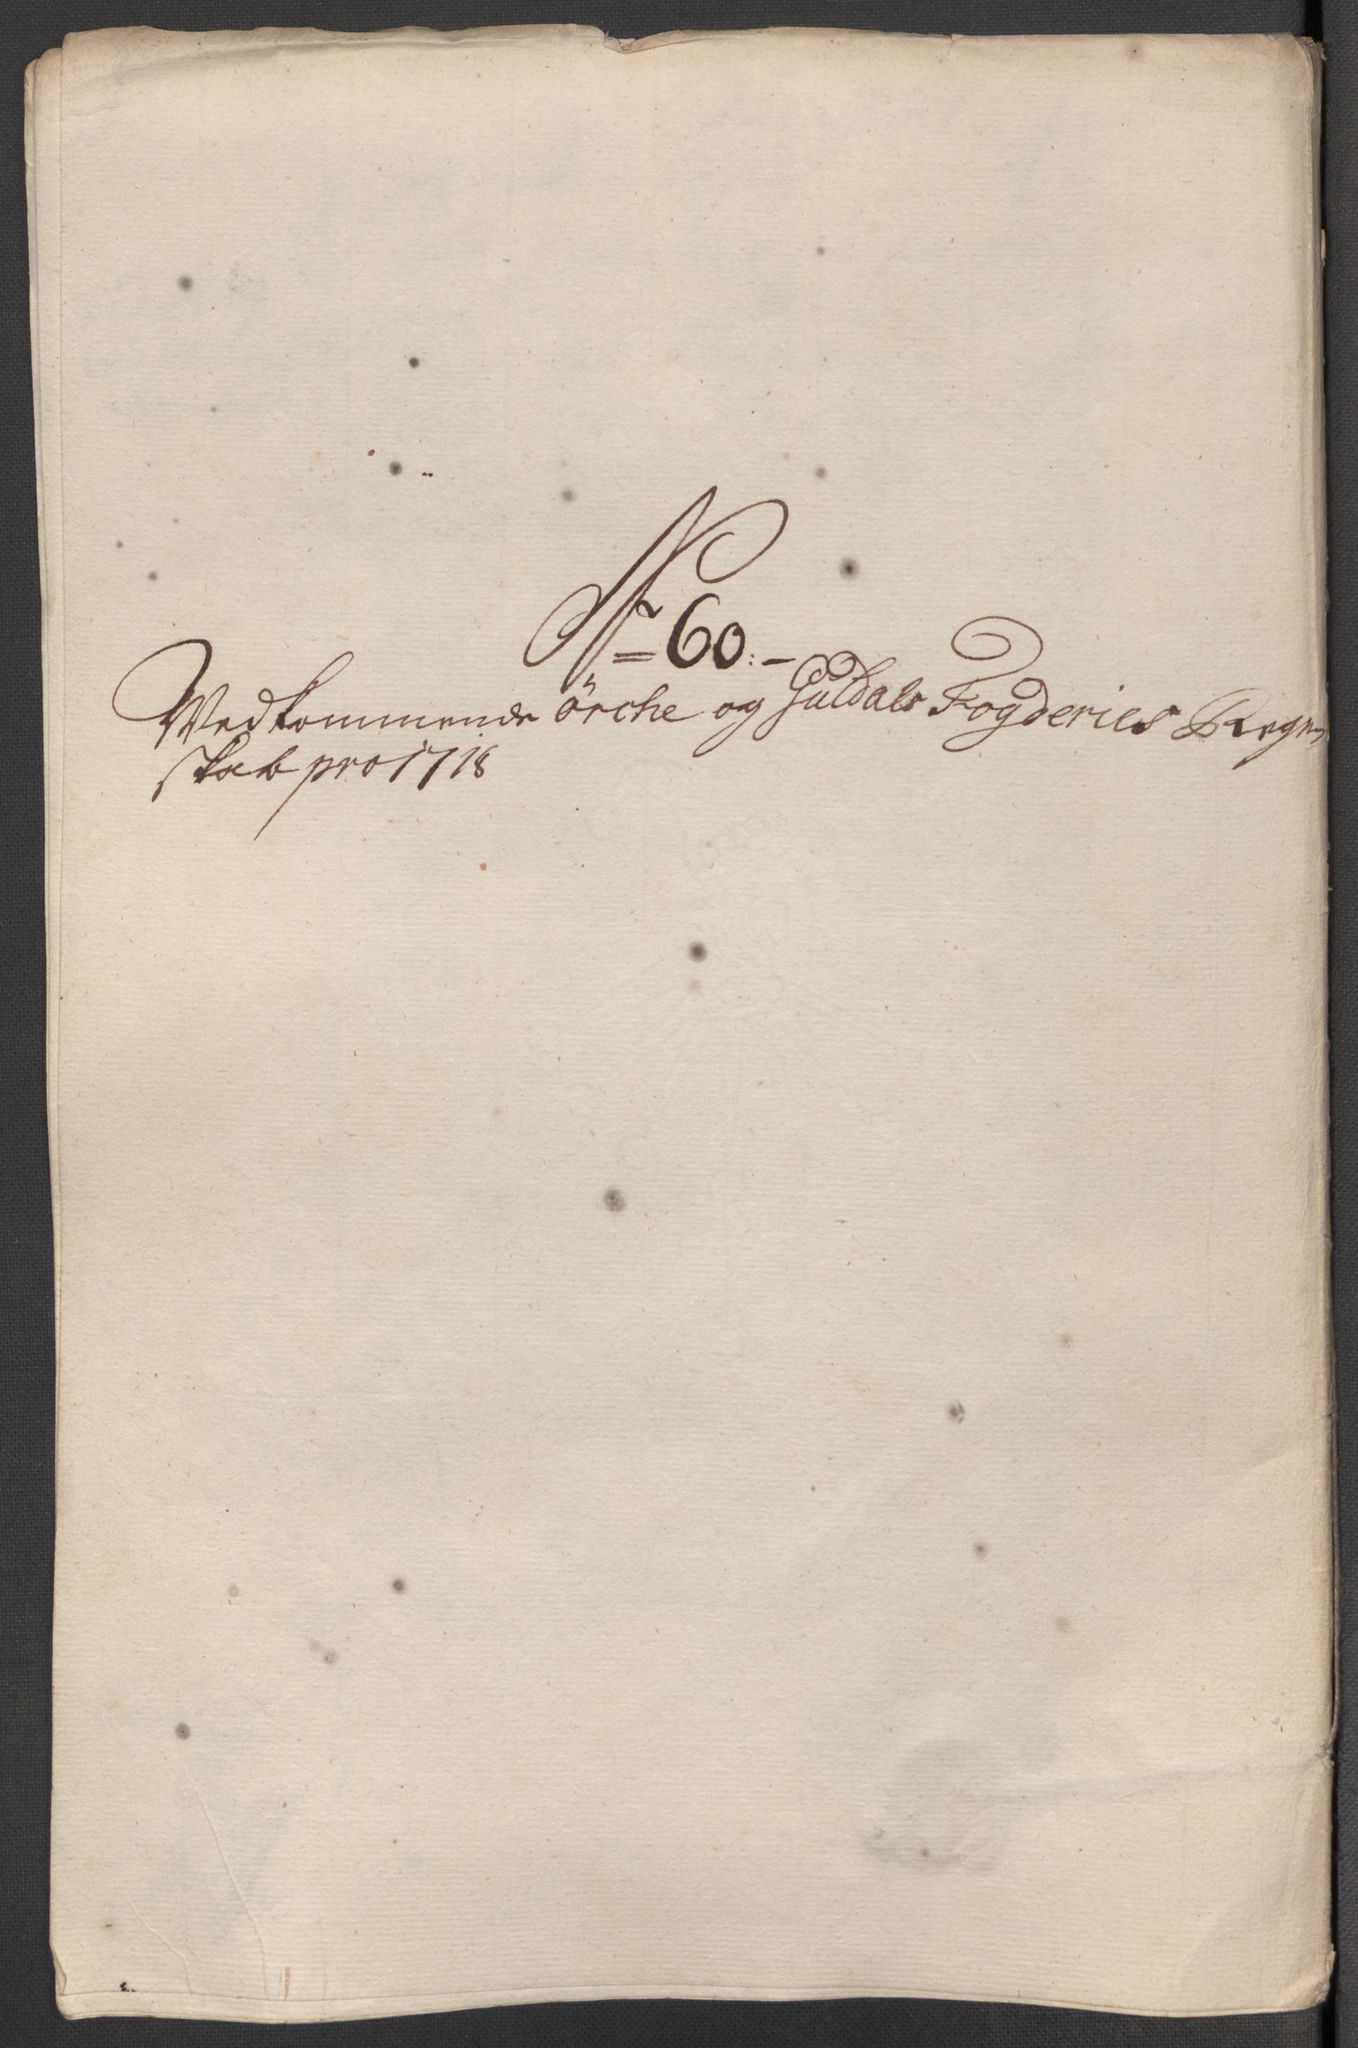 No 60:-
Vedkommende örche og Guldals Fogderies Regn
skab pro 1718